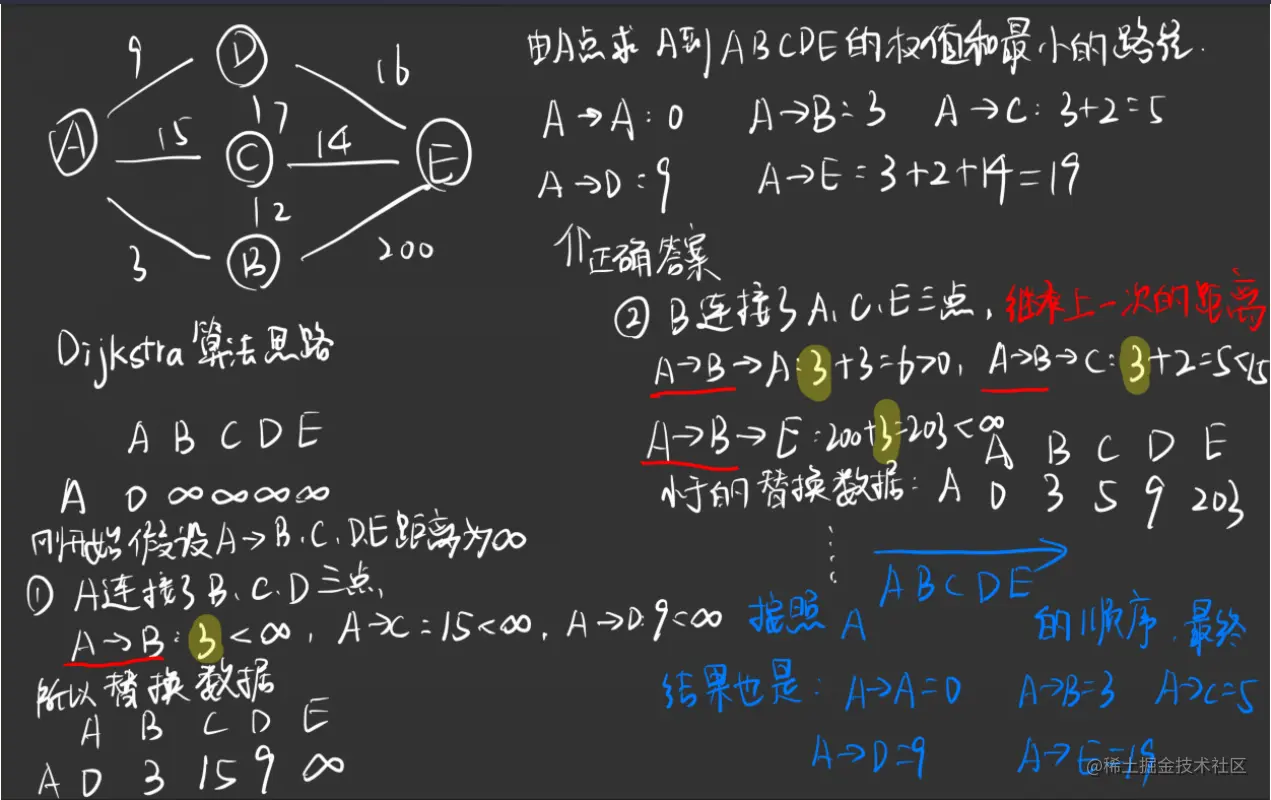 9
D
16
A
15
17
C
14
E
12
3
B
200
由A点求 A到ABCDE的权值和最小的路径.
A→A:0 A→B=3 A→C:3+2=5
A→D:9 A→E=3+2+14=19
⇑正确答案
Dijkstra算法思路
A B C D E
A 0 ∞ ∞ ∞ ∞
刚开始假设A→B.C.D.E距离为∞
① A连接了B、C、D三点,
A→B:3<∞, A→C=15<∞, A→D:9<∞
所以替换数据
A B C D E
A 0 3 15 9 ∞
② B连接了A、C、E三点,继承上一次的距离
A→B→A:3+3=6>0, A→B→C:3+2=5<15
A→B→E:200+3=203<∞
小于的替换数据:
A B C D E
A 0 3 5 9 203
按照 A ABCDE 的顺序,最终
结果也是:A→A=0 A→B=3 A→C=5
A→D=9 A→E=19
@稀土掘金技术社区